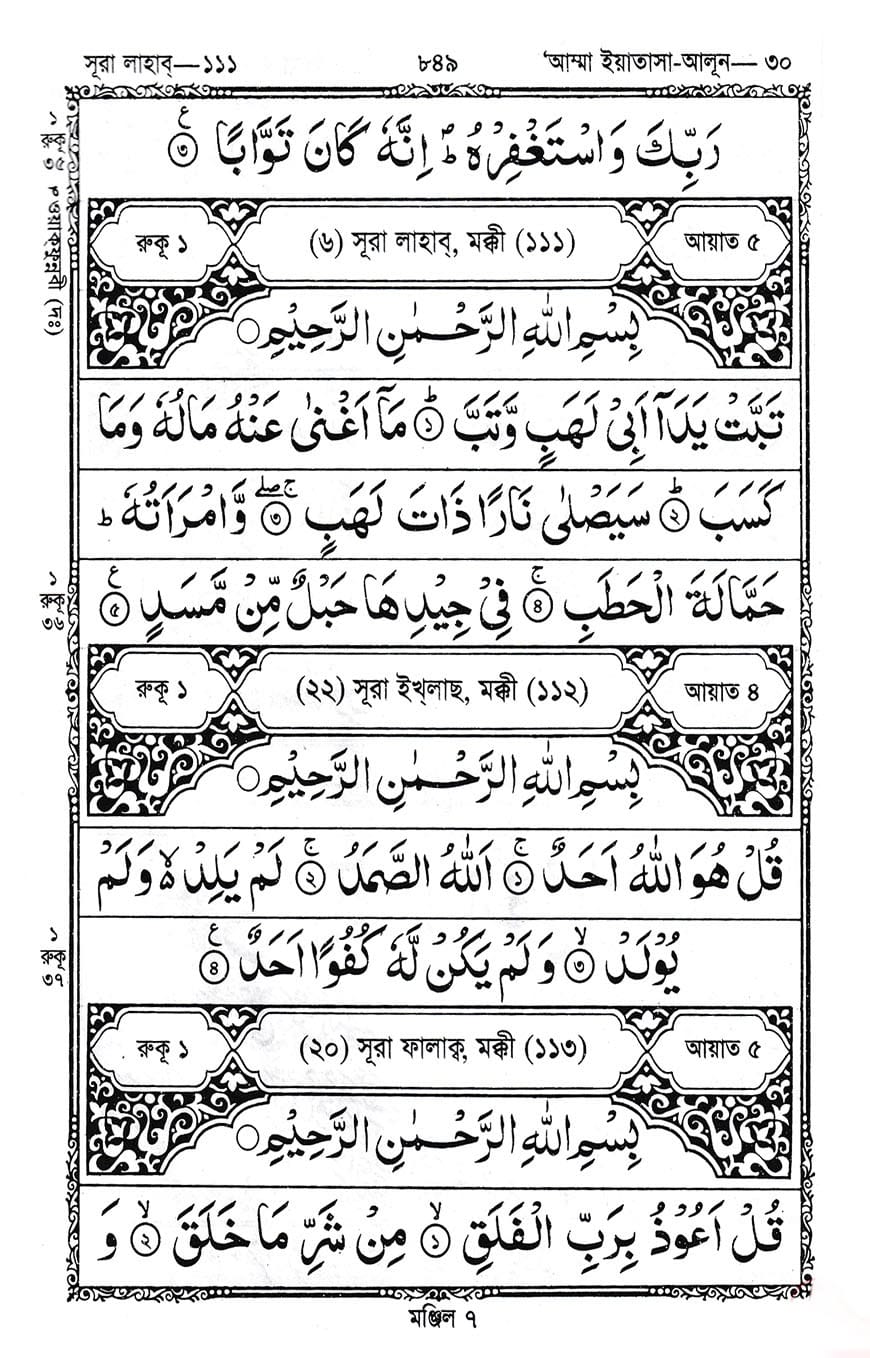 সূরা লাহাব্—১১১ ৮৪৯ ‘আম্মা ইয়াতাসা-আলূন— ৩০
رَبِّكَ وَاسْتَغْفِرْهُ ؕ اِنَّهٗ كَانَ تَوَّابًا ۟ع ৩
১
রুকূ
৩৫
আয়াত ৫ (৬) সূরা লাহাব্, মক্কী (১১১) রুকূ ১
بِسْمِ اللهِ الرَّحْمٰنِ الرَّحِيْمِ ○
تَبَّتْ يَدَاۤ اَبِىْ لَهَبٍ وَّتَبَّ ؕ ১ مَاۤ اَغْنٰى عَنْهُ مَالُهٗ وَمَا
كَسَبَ ؕ ২ سَيَصْلٰى نَارًا ذَاتَ لَهَبٍ ۚۖ ৩ وَّامْرَاَتُهٗ ؕ
حَمَّالَةَ الْحَطَبِ ۚ ৪ فِىْ جِيْدِهَا حَبْلٌ مِّنْ مَّسَدٍ ع ৫
১
রুকূ
৩৬
আয়াত ৪ (২২) সূরা ইখ্লাছ, মক্কী (১১২) রুকূ ১
بِسْمِ اللهِ الرَّحْمٰنِ الرَّحِيْمِ ○
قُلْ هُوَ اللّٰهُ اَحَدٌ ۚ ১ اَللّٰهُ الصَّمَدُ ۚ ২ لَمْ يَلِدْ ۙ۬ وَلَمْ
يُوْلَدْ ۙ ৩ وَلَمْ يَكُنْ لَّهٗ كُفُوًا اَحَدٌ ع ৪
১
রুকূ
৩৭
আয়াত ৫ (২০) সূরা ফালাক্ব, মক্কী (১১৩) রুকূ ১
بِسْمِ اللهِ الرَّحْمٰنِ الرَّحِيْمِ ○
قُلْ اَعُوْذُ بِرَبِّ الْفَلَقِ ۙ ১ مِنْ شَرِّ مَا خَلَقَ ۙ ২ وَ
মঞ্জিল ৭